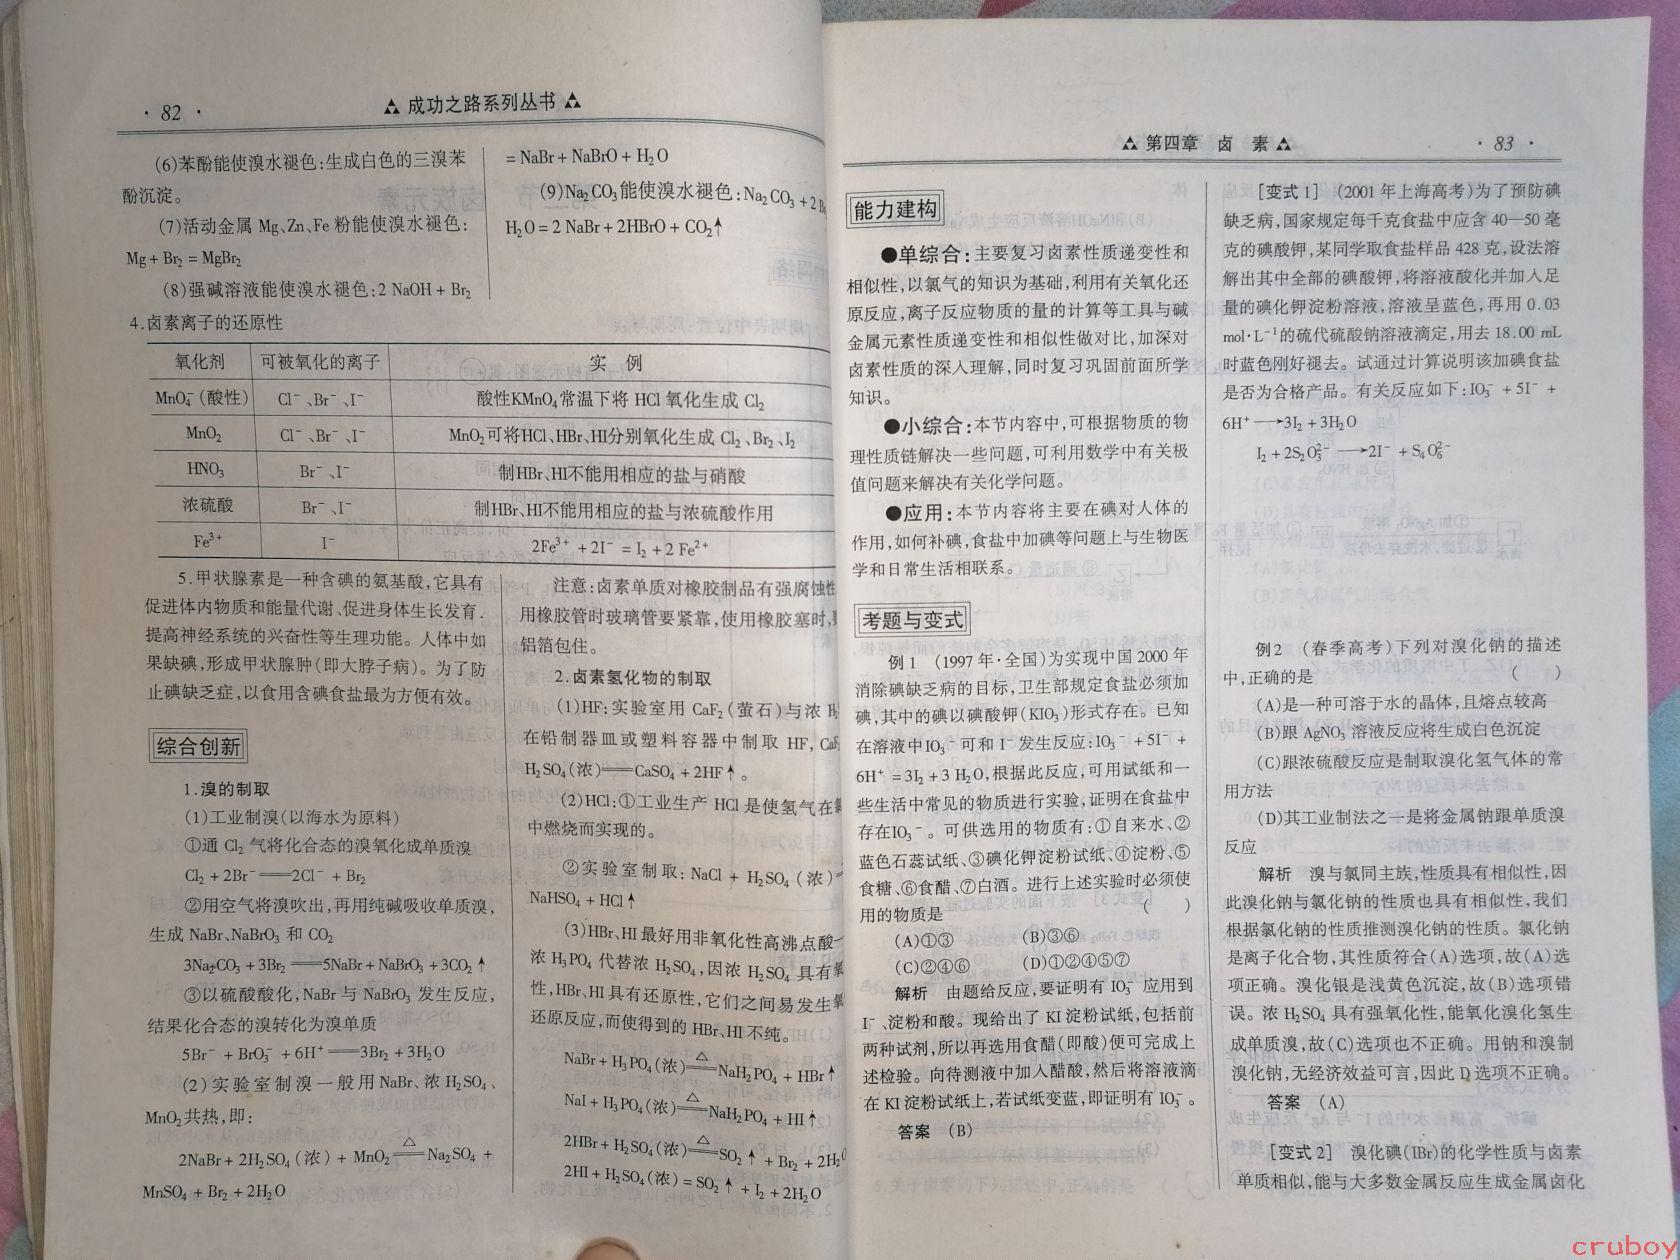 · 82 ·
成功之路系列丛书
(6)苯酚能使溴水褪色:生成白色的三溴苯
酚沉淀。
(7)活动金属 Mg、Zn、Fe 粉能使溴水褪色:
Mg + Br₂ = MgBr₂
(8)强碱溶液能使溴水褪色:2 NaOH + Br₂
= NaBr + NaBrO + H₂O
(9)Na₂CO₃能使溴水褪色:Na₂CO₃ + 2 Br
H₂O = 2 NaBr + 2HBrO + CO₂↑
4.卤素离子的还原性
氧化剂 可被氧化的离子 实 例
MnO₄⁻(酸性) Cl⁻、Br⁻、I⁻ 酸性KMnO₄常温下将 HCl 氧化生成 Cl₂
MnO₂ Cl⁻、Br⁻、I⁻ MnO₂可将HCl、HBr、HI分别氧化生成 Cl₂、Br₂、I₂
HNO₃ Br⁻、I⁻ 制HBr、HI不能用相应的盐与硝酸
浓硫酸 Br⁻、I⁻ 制HBr、HI不能用相应的盐与浓硫酸作用
Fe³⁺ I⁻ 2Fe³⁺ + 2I⁻ = I₂ + 2 Fe²⁺
5.甲状腺素是一种含碘的氨基酸,它具有
促进体内物质和能量代谢、促进身体生长发育.
提高神经系统的兴奋性等生理功能。人体中如
果缺碘,形成甲状腺肿(即大脖子病)。为了防
止碘缺乏症,以食用含碘食盐最为方便有效。
综合创新
1.溴的制取
(1)工业制溴(以海水为原料)
①通 Cl₂ 气将化合态的溴氧化成单质溴
Cl₂ + 2Br⁻══2Cl⁻ + Br₂
②用空气将溴吹出,再用纯碱吸收单质溴,
生成 NaBr、NaBrO₃ 和 CO₂
3Na₂CO₃ + 3Br₂ ══5NaBr + NaBrO₃ + 3CO₂↑
③以硫酸酸化,NaBr 与 NaBrO₃ 发生反应,
结果化合态的溴转化为溴单质
5Br⁻ + BrO₃⁻ + 6H⁺══3Br₂ + 3H₂O
(2)实验室制溴一般用 NaBr、浓 H₂SO₄、
MnO₂共热,即:
2NaBr + 2H₂SO₄(浓) + MnO₂ ══△ Na₂SO₄ +
MnSO₄ + Br₂ + 2H₂O
注意:卤素单质对橡胶制品有强腐蚀性
用橡胶管时玻璃管要紧靠,使用橡胶塞时,
铝箔包住。
2.卤素氢化物的制取
(1)HF:实验室用 CaF₂(萤石)与浓 H
在铅制器皿或塑料容器中制取 HF, CaF
H₂SO₄(浓)══CaSO₄ + 2HF↑。
(2)HCl:①工业生产 HCl 是使氢气在
中燃烧而实现的。
②实验室制取: NaCl + H₂SO₄(浓)
NaHSO₄ + HCl↑
(3)HBr、HI 最好用非氧化性高沸点酸
浓 H₃PO₄ 代替浓 H₂SO₄,因浓 H₂SO₄ 具有氧
性,HBr、HI 具有还原性,它们之间易发生氧
还原反应,而使得到的 HBr、HI 不纯。
NaBr + H₃PO₄(浓) ══△ NaH₂PO₄ + HBr↑
NaI + H₃PO₄(浓) ══△ NaH₂PO₄ + HI↑
2HBr + H₂SO₄(浓) ══△ SO₂↑ + Br₂ + 2H₂O
2HI + H₂SO₄(浓) = SO₂↑ + I₂ + 2H₂O
第四章 卤 素
· 83 ·
能力建构
●单综合:主要复习卤素性质递变性和
相似性,以氯气的知识为基础,利用有关氧化还
原反应,离子反应物质的量的计算等工具与碱
金属元素性质递变性和相似性做对比,加深对
卤素性质的深入理解,同时复习巩固前面所学
知识。
●小综合:本节内容中,可根据物质的物
理性质链解决一些问题,可利用数学中有关极
值问题来解决有关化学问题。
●应用:本节内容将主要在碘对人体的
作用,如何补碘,食盐中加碘等问题上与生物医
学和日常生活相联系。
考题与变式
例1 (1997年·全国)为实现中国 2000 年
消除碘缺乏病的目标,卫生部规定食盐必须加
碘,其中的碘以碘酸钾(KIO₃)形式存在。已知
在溶液中IO₃⁻可和 I⁻ 发生反应:IO₃⁻ + 5I⁻ +
6H⁺ = 3I₂ + 3 H₂O,根据此反应,可用试纸和一
些生活中常见的物质进行实验,证明在食盐中
存在IO₃⁻。可供选用的物质有:①自来水、②
蓝色石蕊试纸、③碘化钾淀粉试纸、④淀粉、⑤
食糖、⑥食醋、⑦白酒。进行上述实验时必须使
用的物质是 ( )
(A)①③ (B)③⑥
(C)②④⑥ (D)①②④⑤⑦
解析 由题给反应,要证明有 IO₃⁻ 应用到
I⁻、淀粉和酸。现给出了 KI 淀粉试纸,包括前
两种试剂,所以再选用食醋(即酸)便可完成上
述检验。向待测液中加入醋酸,然后将溶液滴
在 KI 淀粉试纸上,若试纸变蓝,即证明有 IO₃⁻。
答案 (B)
[变式1] (2001年上海高考)为了预防碘
缺乏病,国家规定每千克食盐中应含 40—50 毫
克的碘酸钾,某同学取食盐样品 428 克,设法溶
解出其中全部的碘酸钾,将溶液酸化并加入足
量的碘化钾淀粉溶液,溶液呈蓝色,再用 0.03
mol·L⁻¹的硫代硫酸钠溶液滴定,用去 18.00 mL
时蓝色刚好褪去。试通过计算说明该加碘食盐
是否为合格产品。有关反应如下:IO₃⁻ + 5I⁻ +
6H⁺ ⟶3I₂ + 3H₂O
I₂ + 2S₂O₃²⁻ ⟶2I⁻ + S₄O₆²⁻
例2 (春季高考)下列对溴化钠的描述
中,正确的是 ( )
(A)是一种可溶于水的晶体,且熔点较高
(B)跟 AgNO₃ 溶液反应将生成白色沉淀
(C)跟浓硫酸反应是制取溴化氢气体的常
用方法
(D)其工业制法之一是将金属钠跟单质溴
反应
解析 溴与氯同主族,性质具有相似性,因
此溴化钠与氯化钠的性质也具有相似性,我们
根据氯化钠的性质推测溴化钠的性质。氯化钠
是离子化合物,其性质符合(A)选项,故(A)选
项正确。溴化银是浅黄色沉淀,故(B)选项错
误。浓 H₂SO₄ 具有强氧化性,能氧化溴化氢生
成单质溴,故(C)选项也不正确。用钠和溴制
溴化钠,无经济效益可言,因此 D 选项不正确。
答案 (A)
[变式2] 溴化碘(IBr)的化学性质与卤素
单质相似,能与大多数金属反应生成金属卤化
cruboy